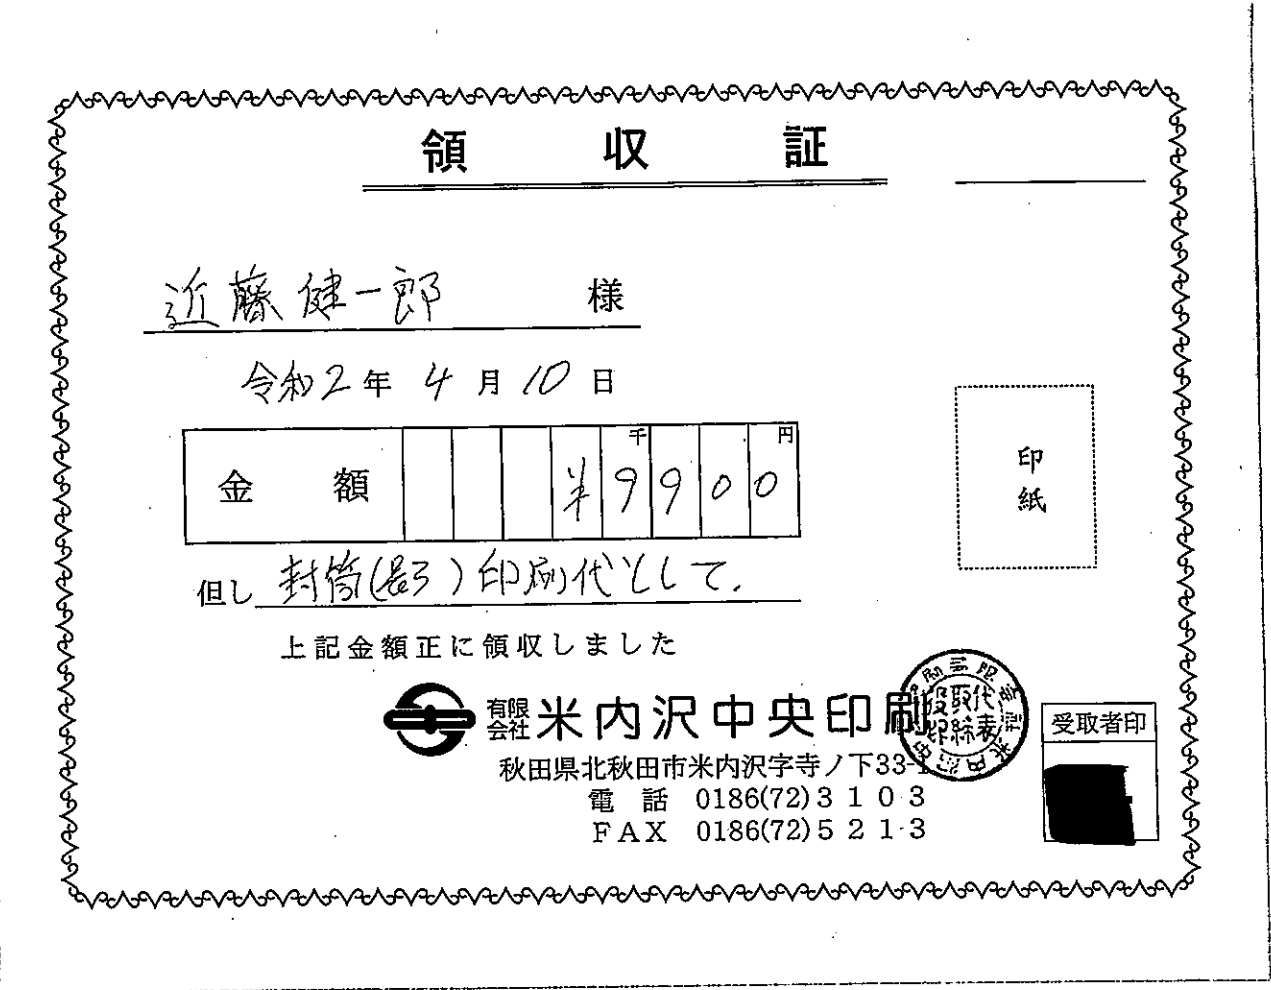 領収証
近藤健一郎 様
令和2年 4月 10日
金額 ¥9900
千 円
但し 封筒(長3)印刷代として.
上記金額正に領収しました
有限会社 米内沢中央印刷
秋田県北秋田市米内沢字寺ノ下33-1
電話 0186(72)3103
FAX 0186(72)5213
印紙
受取者印
代表取締役印